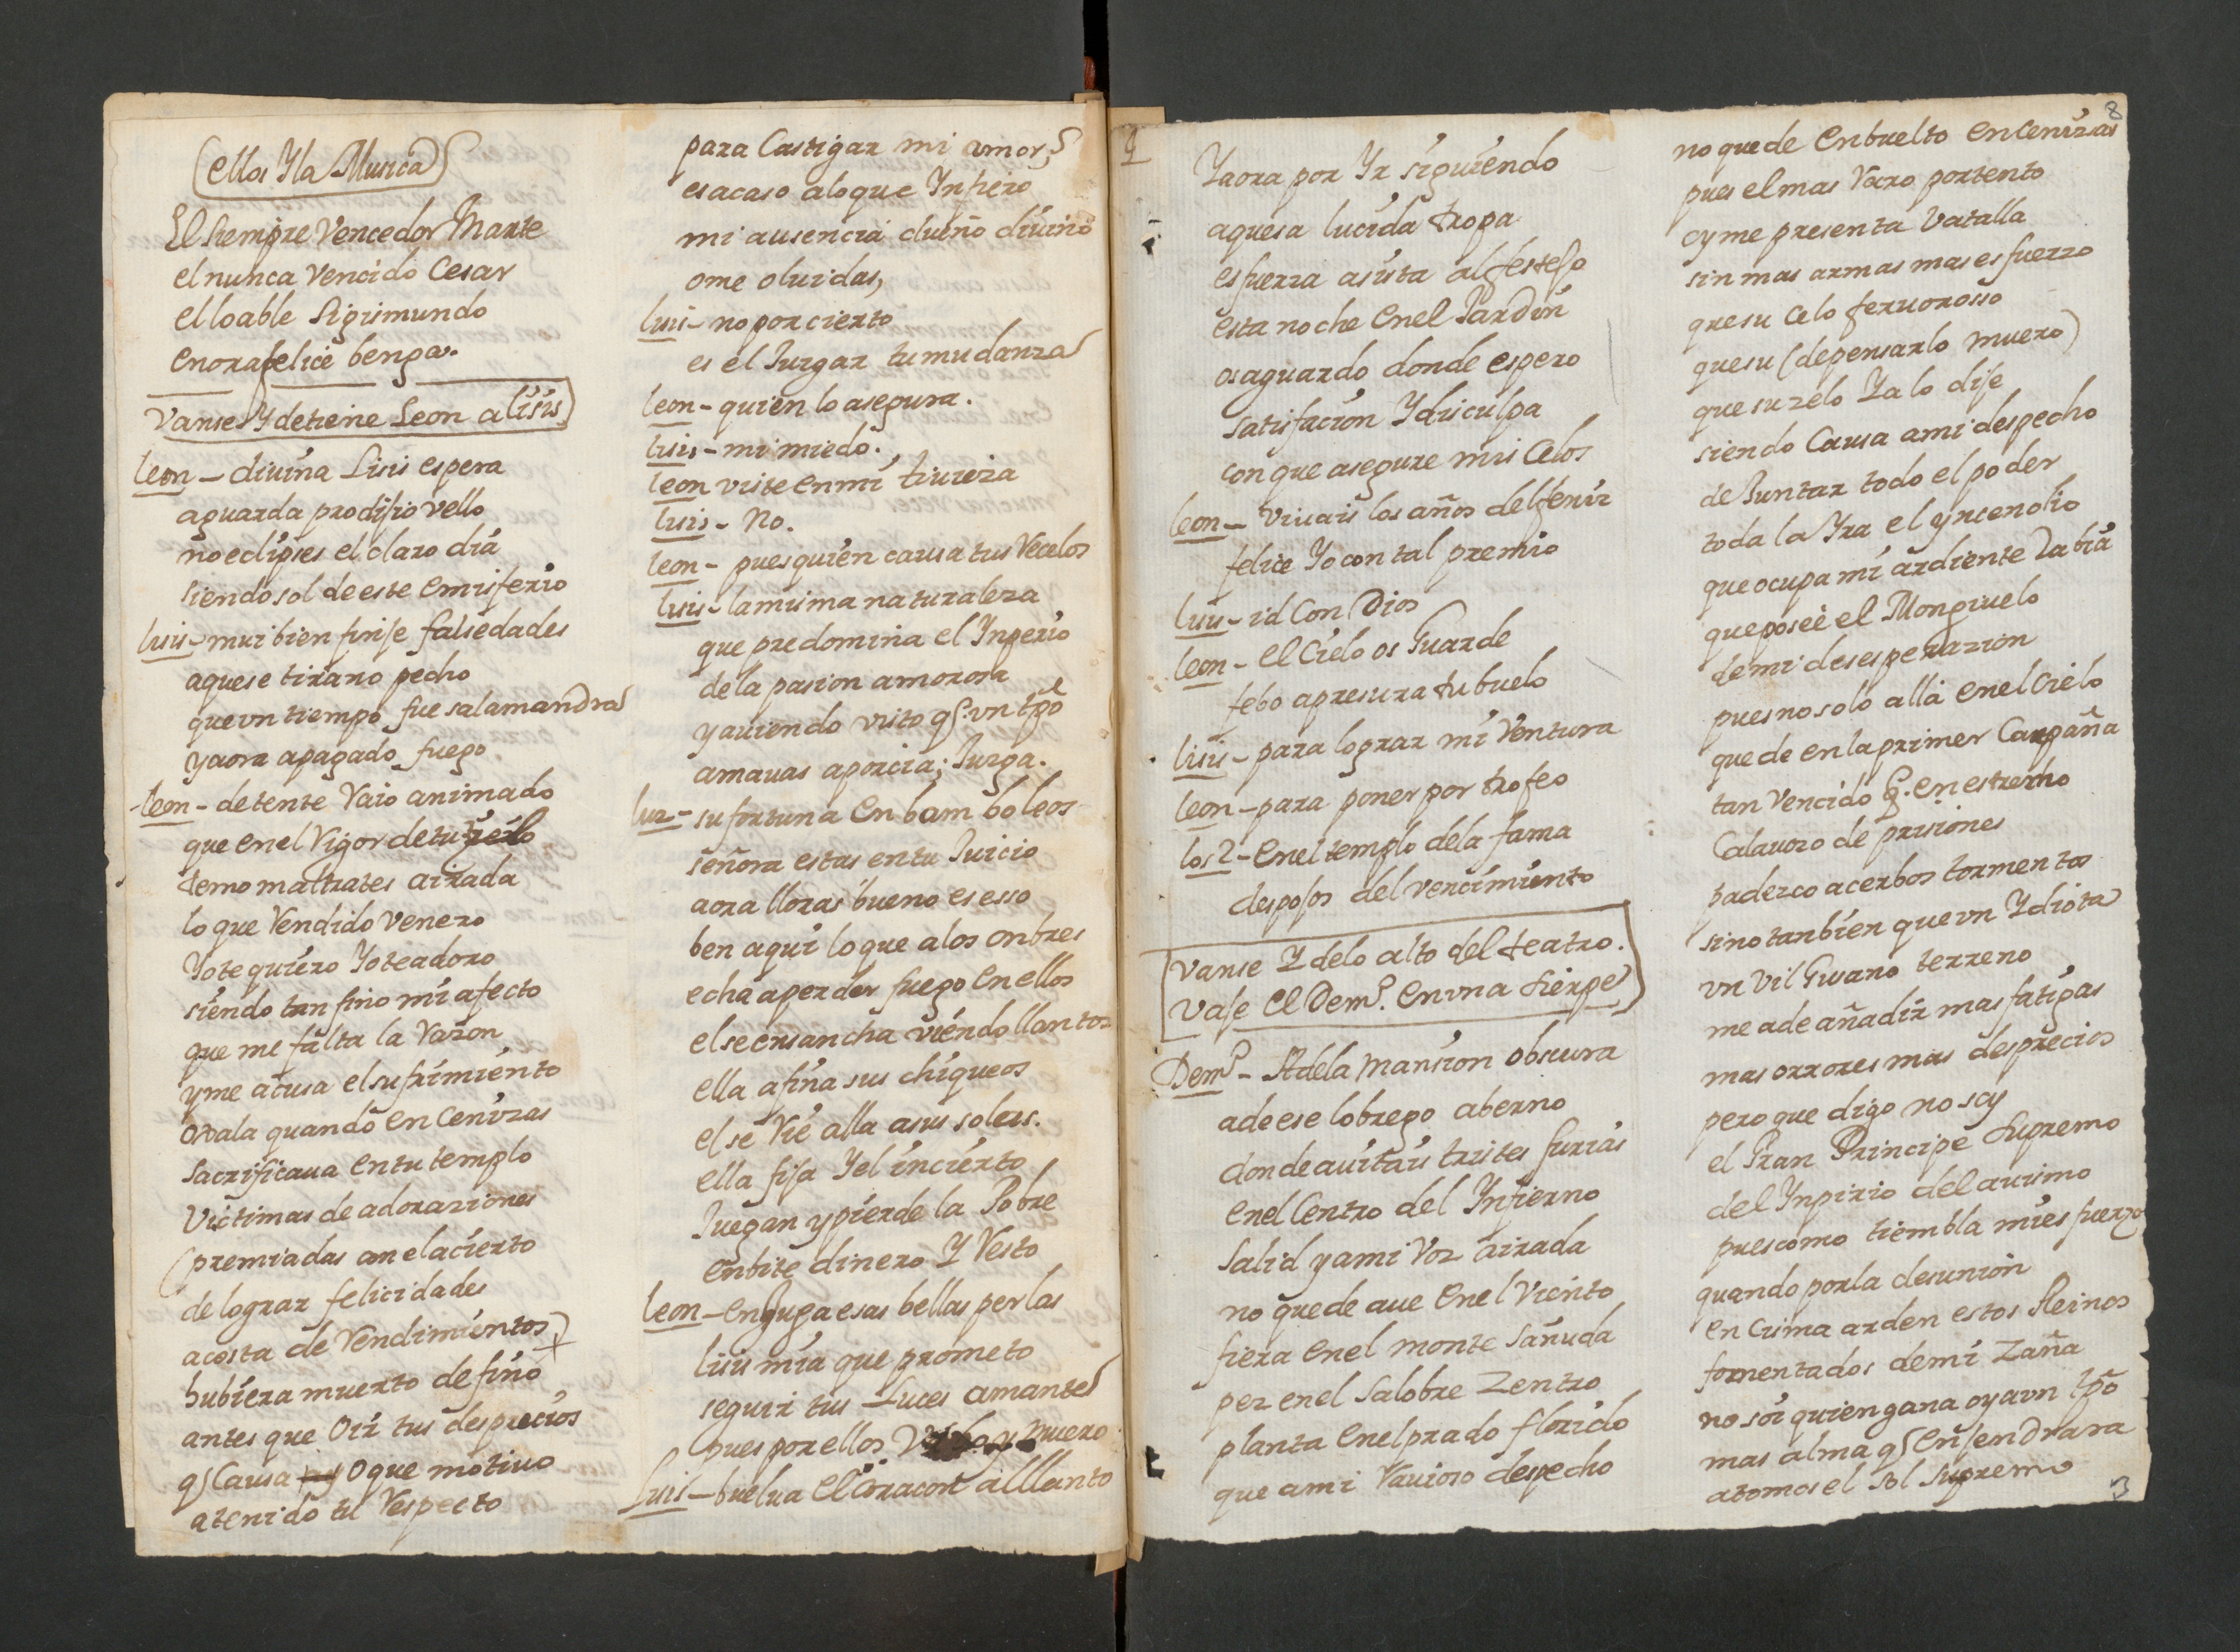 ellos Y la Musica
El siempre Vencedor Marte
el nunca vencido Cesar
el loable Sigismundo
enora felice benga.
Vanse Y detiene Leon a lisis
leon - divina Lisis espera
aguarda prodijio vello
no eclipses el claro dia
siendo sol de este emisferio
lisis - mui bien finje falsedades
aquese tirano pecho
que vn tiempo fue salamandra
y aora apagado fuego
leon - detente Raio animado
que en el Vigor de tu
temo maltrates airada
lo que Rendido venero
Yo te quiero Yo te adoro
siendo tan fino mi afecto
que me falta la Razon
y me acusa el sufrimiento
oxala quando en Cenizas
sacrificaua en tu templo
Victimas de adoraziones
(premiadas con el acierto
de lograr felicidades
acosta de Rendimientos)
hubiera muerto de fino
antes que Oir tus desprecios
q Causa o que motiuo
a tenido tu Respecto
para Castigar mi amor
es acaso a lo que Ynfiero
mi ausencia dueño diuino
o me oluidas,
lisis - no por cierto
es el Juzgar tu mudanza
leon - quien lo asegura.
lisis - mi miedo.
leon viste en mi tiuieza
lisis - No.
leon - pues quien causa tus Recelos
lisis - la misma naturaleza
que predomina el Ynperio
de la pasion amorosa
y auiendo visto q vn tpo
amauas a porcia; Juzga.
luz - su fortuna en bamboleos
señora estas en tu Juicio
aora lloras bueno es esso
ben aqui lo que a los onbres
echa a perder fuego en ellos
el se ensancha viendo llantos
ella afina sus chiqueos
el se Rie alla a sus solas.
ella fija Y el incierto
Juegan y pierde la Pobre
enbite dinero Y Resto
leon - enJuga esas bellas perlas
lisis mia que prometo
seguir tus Luces amante
pues por ellos muero
Lisis - buelua el Corazon al llanto
9
Y aora por Yr siguiendo
aquesa lucida tropa
es fuerza asista al festejo
esta noche en el Jardin
os aguardo donde espero
satisfacion Y disculpa
con que asegure mis Celos
leon - viuais los años del fenix
felice Yo con tal premio
lisis - id Con Dios
leon - el Cielo os Guarde
febo apresura tu buelo
lisis - para lograr mi Ventura
leon - para poner por trofeo
los 2 - en el templo de la fama
despojos del vencimiento
Vanse Y de lo alto del teatro.
Vaje el Demo. en vna sierpe
Demo - A de la mansion obscura
a de ese lobrego aberno
donde auitais tristes furias
en el Centro del Ynfierno
salid y a mi Voz airada
no quede aue en el Viento
fiera en el monte sañuda
pez en el salobre zentro
planta en el prado florido
que a mi Rauioso despecho
8
no quede enbuelto en Cenizas
pues el mas Raro portento
oy me presenta vatalla
sin mas armas mas esfuerzo
que su Celo feruorosso
que su (de pensarlo muero)
que su zelo Ya lo dije
siendo Causa a mi despecho
de Juntar todo el poder
toda la Yra el yncendio
que ocupa mi ardiente Rabia
que poseè el Mongiuelo
de mi desesperazion
pues no solo allà en el Cielo
quede en la primer Campaña
tan Vencido q. en estrecho
Calauozo de prisiones
padezco acerbos tormentos
sino tanbien que vn Ydiota
vn Vil Gusano terreno
me a de añadir mas fatigas
mas orrores mas desprecios
pero que digo no soy
el Gran Principe supremo
del Ynpirio del auismo
pues como tiembla mi esfuerzo
quando por la desunion
en Cisma arden estos Reinos
fomentados de mi zaña
no soi quien gana oy a vn tpo
mas alma q enJendrara
atomos el sol supremo
3